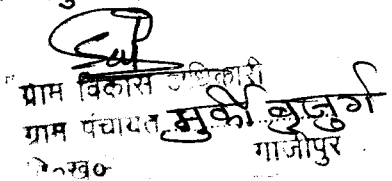 ग्राम विकास अधिकारी
ग्राम पंचायत मुर्की बुजुर्ग
गाजीपुर